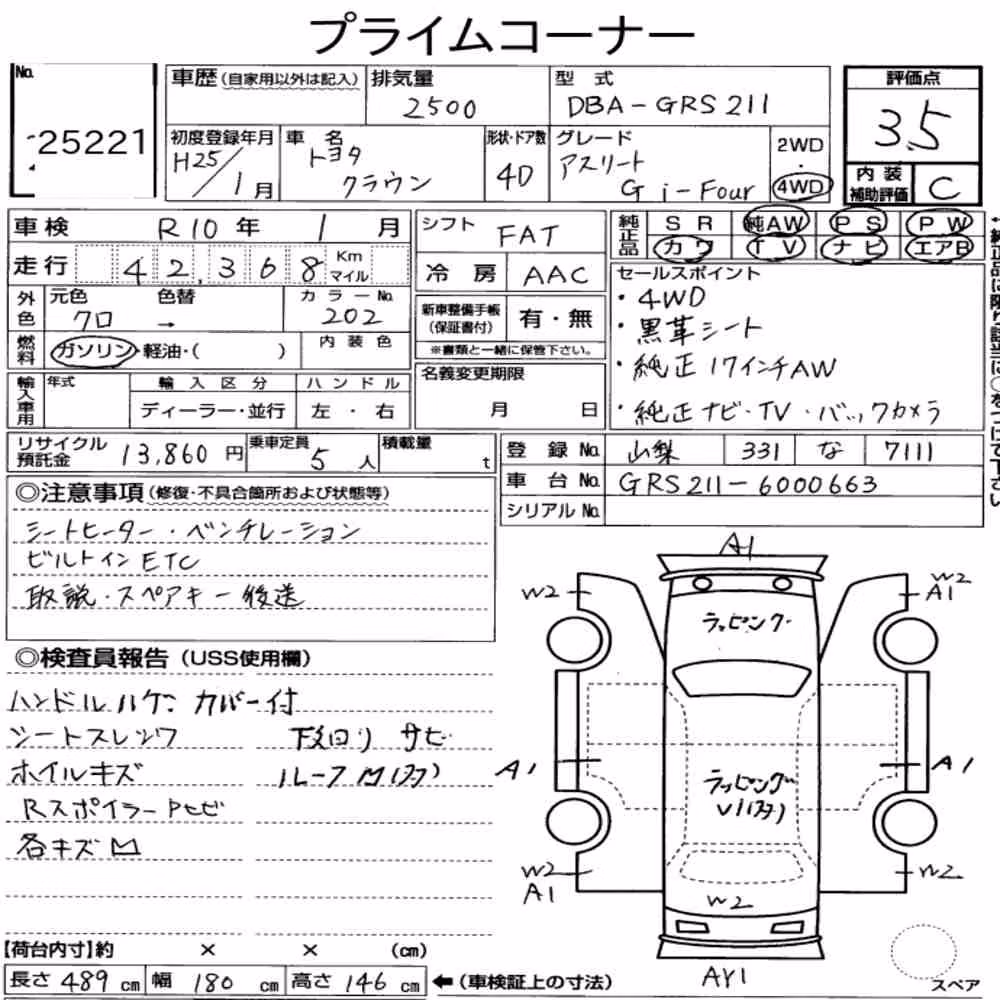 プライムコーナー
No.
25221
車歴(自家用以外は記入)
排気量
2500
型 式
DBA-GRS211
評価点
3.5
初度登録年月
H25/1月
車 名
トヨタ
クラウン
形状・ドア数
4D
グレード
アスリート
G i-Four
2WD
・
4WD
内 装
補助評価
C
車検
R10年 1月
シフト
FAT
純正品
SR
純AW
PS
PW
カワ
TV
ナビ
エアB
走行
42,368
Km
マイル
冷 房
AAC
セールスポイント
・4WD
・黒革シート
・純正17インチAW
・純正ナビ・TV・バックカメラ
外色
元色
クロ
色替
→
カラーNo.
202
新車整備手帳
(保証書付)
有・無
※書類と一緒に保管下さい。
燃料
ガソリン・軽油・( )
内 装 色
輸入車用
年式
輸 入 区 分
ディーラー・並行
ハ ン ド ル
左 ・ 右
名義変更期限
月 日
リサイクル
預託金
13,860円
乗車定員
5人
積載量
t
登 録 No.
山梨
331
な
7111
車 台 No.
GRS211-6000663
シリアル No.
◎注意事項(修復・不具合箇所および状態等)
シートヒーター・ベンチレーション
ビルトインETC
取説・スペアキー後送
◎検査員報告(USS使用欄)
ハンドルハゲ カバー付
シートスレシワ
下廻り サビ
ホイルキズ
Rスポイラー
各キズ凹
A1
W2
W2
A1
ラッピング
A1
A1
ラッピング
W2
A1
W2
W2
AY1
スペア
【荷台内寸】約 × × (cm)
長さ 489 cm
幅 180 cm
高さ 146 cm
←(車検証上の寸法)